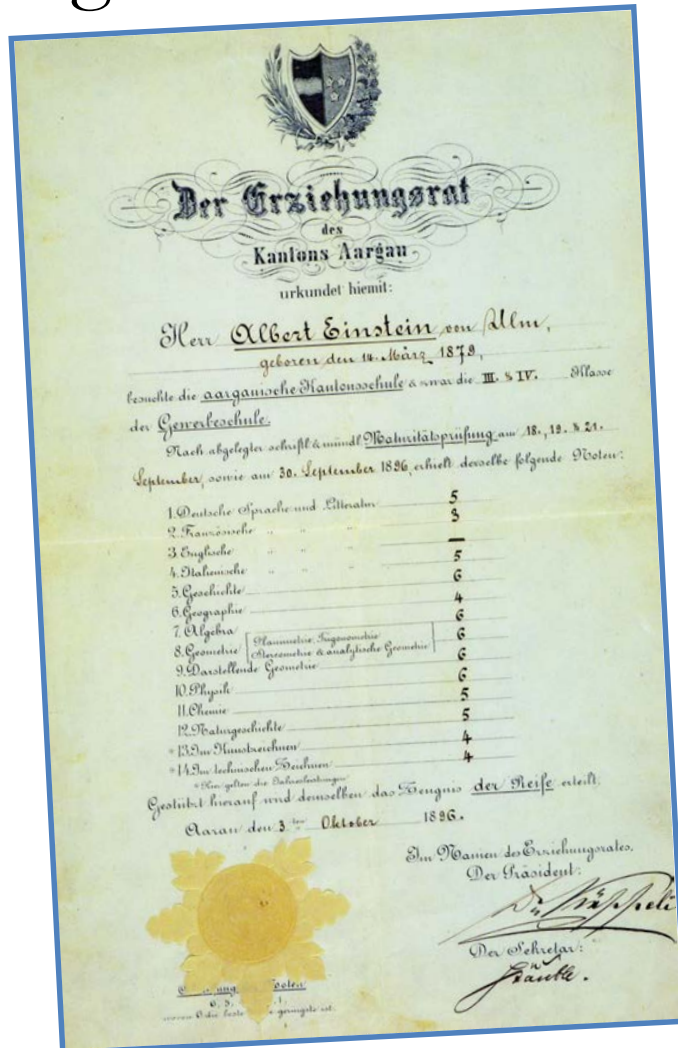 g
Der Erziehungsrat
des
Kantons Aargau
urkundet hiemit:
Herr Albert Einstein von Ulm,
geboren den 14. März 1879,
besuchte die aargauische Kantonsschule & zwar die III. & IV. Klasse
der Gewerbeschule.
Nach abgelegter schriftl. & mündl. Maturitätsprüfung am 18., 19. & 21.
September, sowie am 30. September 1896, erhielt derselbe folgende Noten:
1. Deutsche Sprache und Litteratur 5
2. Französische " " " 3
3. Englische " " " —
4. Italienische " " " 5
5. Geschichte 6
6. Geographie 4
7. Algebra 6
8. Geometrie [Planimetrie, Trigonometrie 6
Stereometrie & analytische Geometrie]
9. Darstellende Geometrie 6
10. Physik 6
11. Chemie 5
12. Naturgeschichte 5
* 13. Im Kunstzeichnen 4
* 14. Im technischen Zeichnen 4
* Hier gelten die Jahresleistungen.
Gestützt hierauf wird demselben das Zeugnis der Reife erteilt.
Aarau den 3ten Oktober 1896.
Im Namen des Erziehungsrates,
Der Präsident:
Der Sekretär:
Noten
6, 5,
wovon 6 die beste geringste ist.